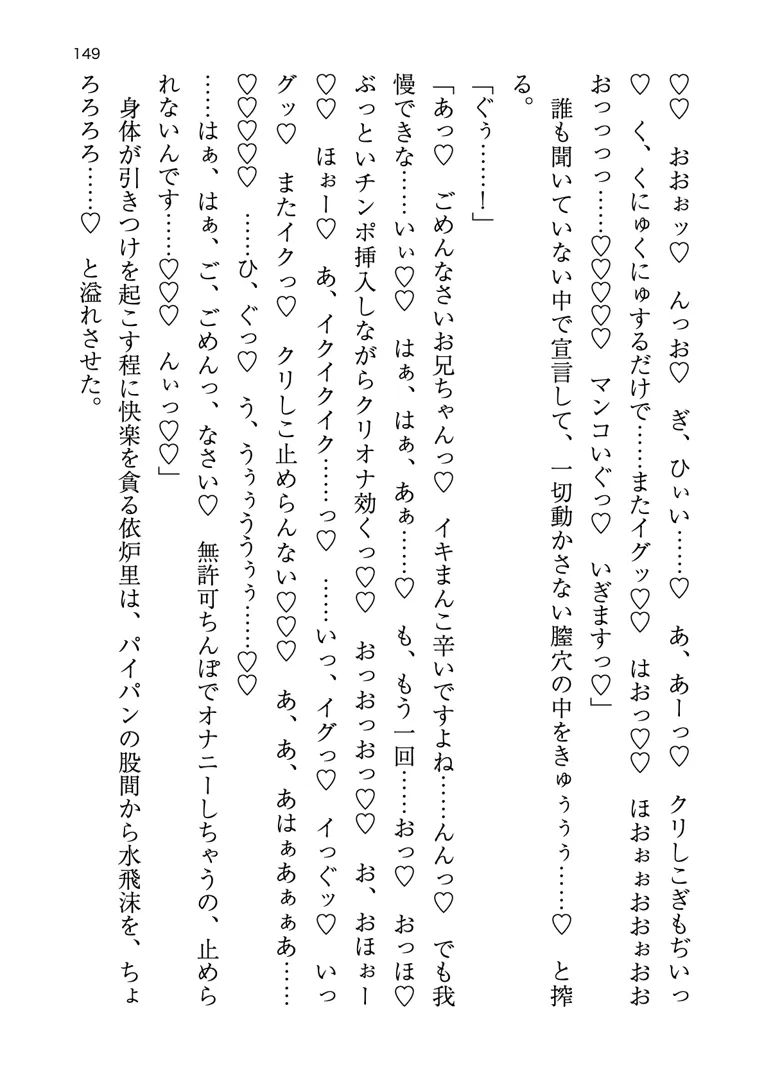 149
♡♡　おおぉッ♡　んっお♡　ぎ、ひぃい……♡　あ、あーっ♡　クリしこぎもぢいっ
♡　く、くにゅくにゅするだけで……またイグッ♡♡　はおっ♡♡　ほおぉぉおおぉおお
おっっっっ……♡♡♡♡♡　マンコいぐっ♡　いぎますっ♡」
　誰も聞いていない中で宣言して、一切動かさない膣穴の中をきゅぅぅぅ……♡　と搾
る。
「ぐぅ……！」
「あっ♡　ごめんなさいお兄ちゃんっ♡　イキまんこ辛いですよね……んんっ♡　でも我
慢できな……いぃ♡♡　はぁ、はぁ、あぁ……♡　も、もう一回……おっ♡　おっほ♡
ぶっといチンポ挿入しながらクリオナ効くっ♡♡　おっおっおっ♡♡　お、おほぉー
♡♡　ほぉー♡　あ、イクイクイク……っ♡　……いっ、イグっ♡　イっぐッ♡　いっ
グッ♡　またイクっ♡　クリしこ止めらんない♡♡♡　あ、あ、あはぁあぁぁあ……
♡♡♡♡♡　……ひ、ぐっ♡　う、うぅぅううぅぅ……♡♡
……はぁ、はぁ、ご、ごめんっ、なさい♡　無許可ちんぽでオナニーしちゃうの、止めら
れないんです……♡♡♡　んぃっ♡♡」
　身体が引きつけを起こす程に快楽を貪る依炉里は、パイパンの股間から水飛沫を、ちょ
ろろろろ……♡　と溢れさせた。